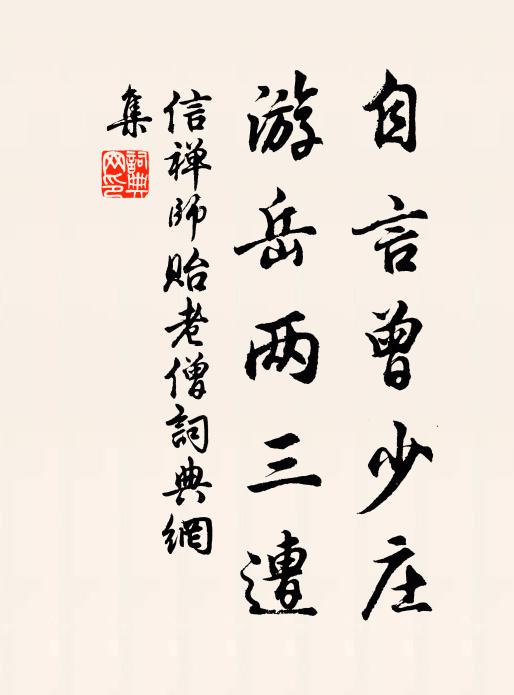 自言曾少庄
游岳两三遭
信禅師贻老僧詞典網
集
詞典网印